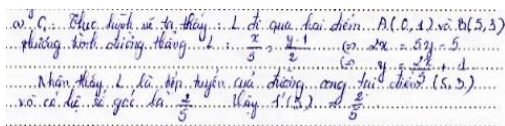 a) C₁: Thực hành vẽ ta thấy: L đi qua hai điểm A(0,1) và B(5,3)
phương trình đường thẳng L: x/5 = (y-1)/2 (=) 2x = 5y - 5
(=) y = 2x/5 + 1
Nhận thấy L là tiếp tuyến của đường cong tại điểm (5,3)
và có hệ số góc là 2/5 Vậy f'(5) = 2/5